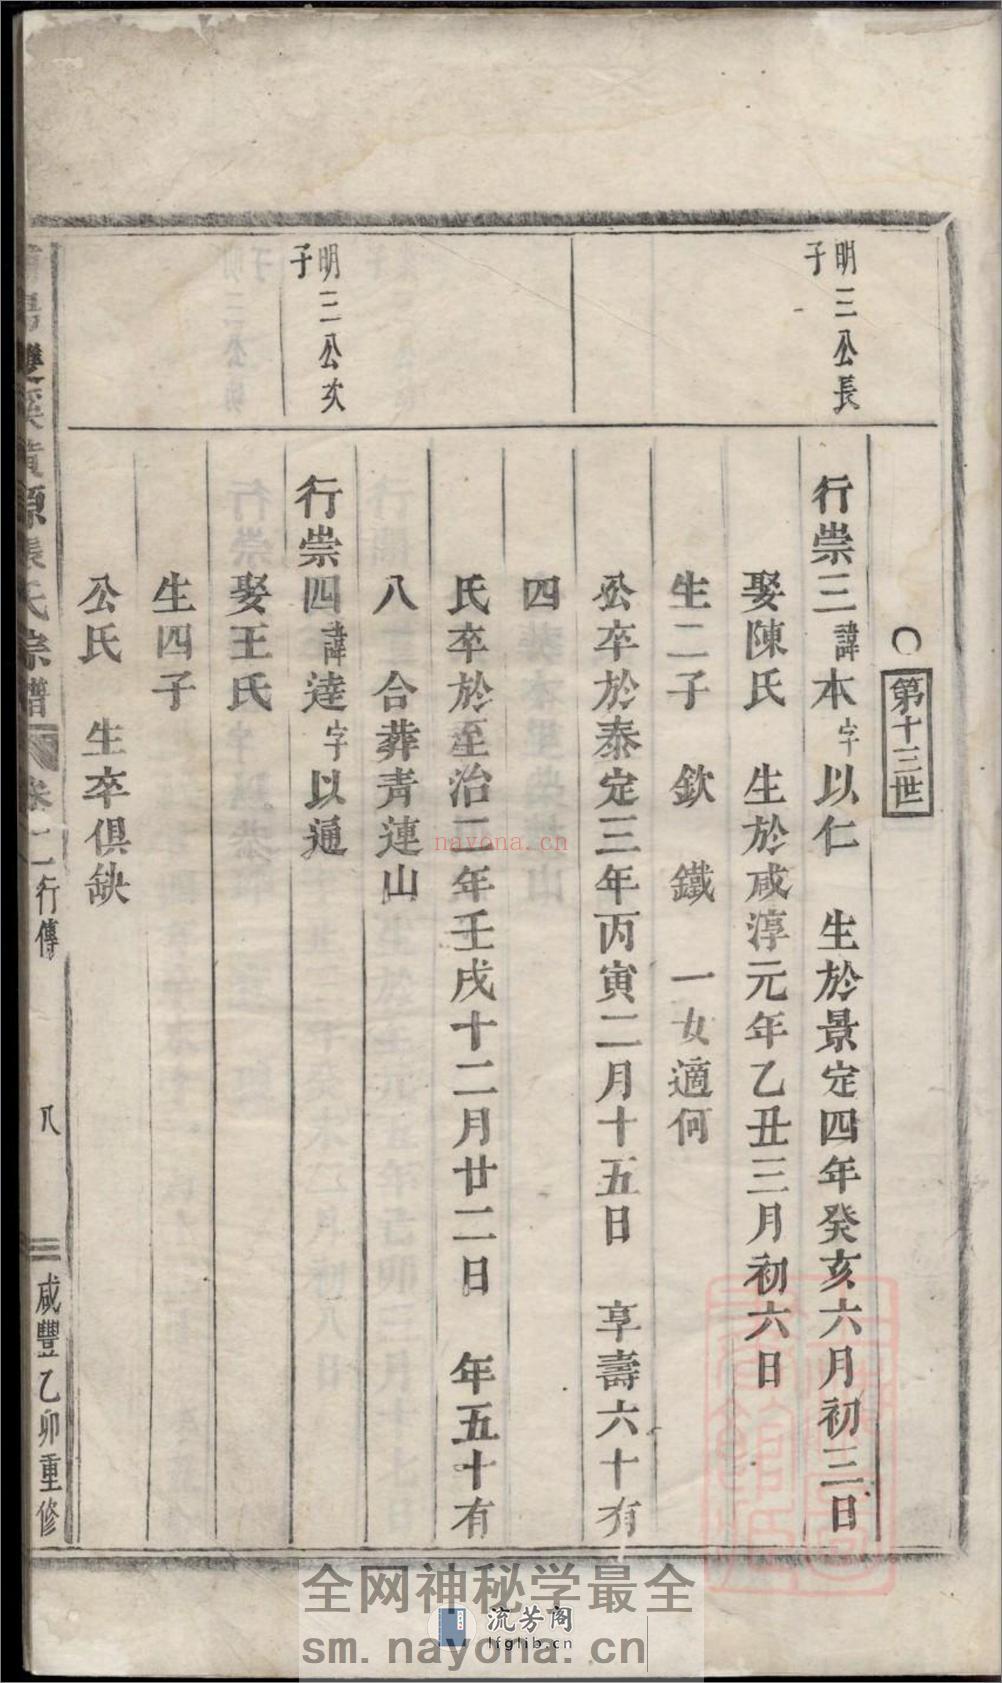 ○第十三世
明三公長
子
行崇三諱本字以仁　生於景定四年癸亥六月初三日
娶陳氏　生於咸淳元年乙丑三月初六日
生二子　欽　鐵　一女適何
公卒於泰定三年丙寅二月十五日　享壽六十有
四
氏卒於至治二年壬戌十二月廿二日　年五十有
八　合葬青連山
明三公次
子
行崇四諱逵字以通
娶王氏
生四子
公氏　生卒俱缺
雙溪黃源張氏宗譜　卷二行傳　八　咸豐乙卯重修
nayona.cn
全网神秘学最全
流芳阁
lfglib.cn
sm.nayona.cn